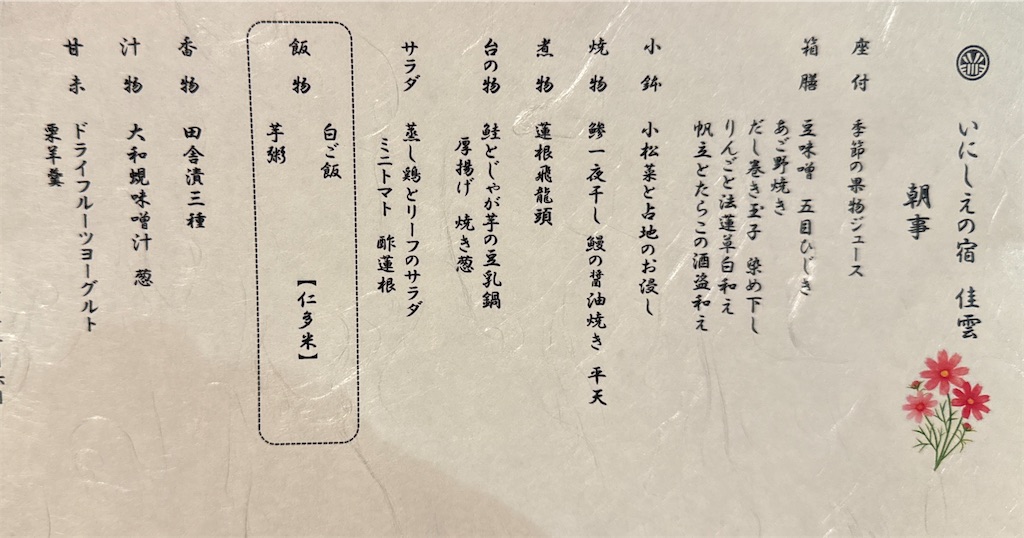 いにしえの宿 佳雲
朝事
座付 季節の果物ジュース
箱膳 豆味噌 五目ひじき
あご野焼き
だし巻き玉子 染め下し
りんごと法蓮草白和え
帆立とたらこの酒盗和え
小鉢 小松菜と占地のお浸し
焼物 鯵一夜干し 鰻の醤油焼き 平天
煮物 蓮根飛龍頭
台の物 鮭とじゃが芋の豆乳鍋
厚揚げ 焼き葱
サラダ 蒸し鶏とリーフのサラダ
ミニトマト 酢蓮根
飯物 白ご飯
【仁多米】
芋粥
香物 田舎漬三種
汁物 大和蜆味噌汁 葱
甘未 ドライフルーツヨーグルト
栗羊羹